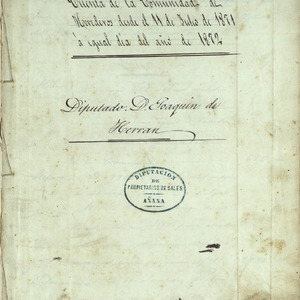 Cuenta de la Comunidad de
Herederos desde el 11 de Julio de 1871
á igual dia del año de 1872
Diputado D. Joaquin de
Herran
DIPUTACION
DE
PROPIETARIOS DE SALES
DE
AÑANA